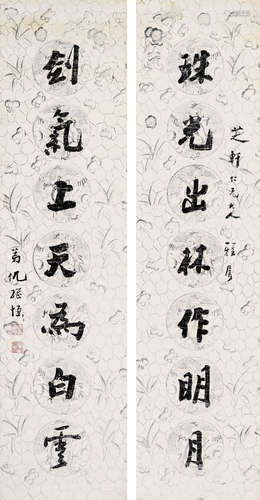 芝軒仁兄大人
雅屬
珠光出林作明月
劍氣上天為白雲
弟仇繼恒